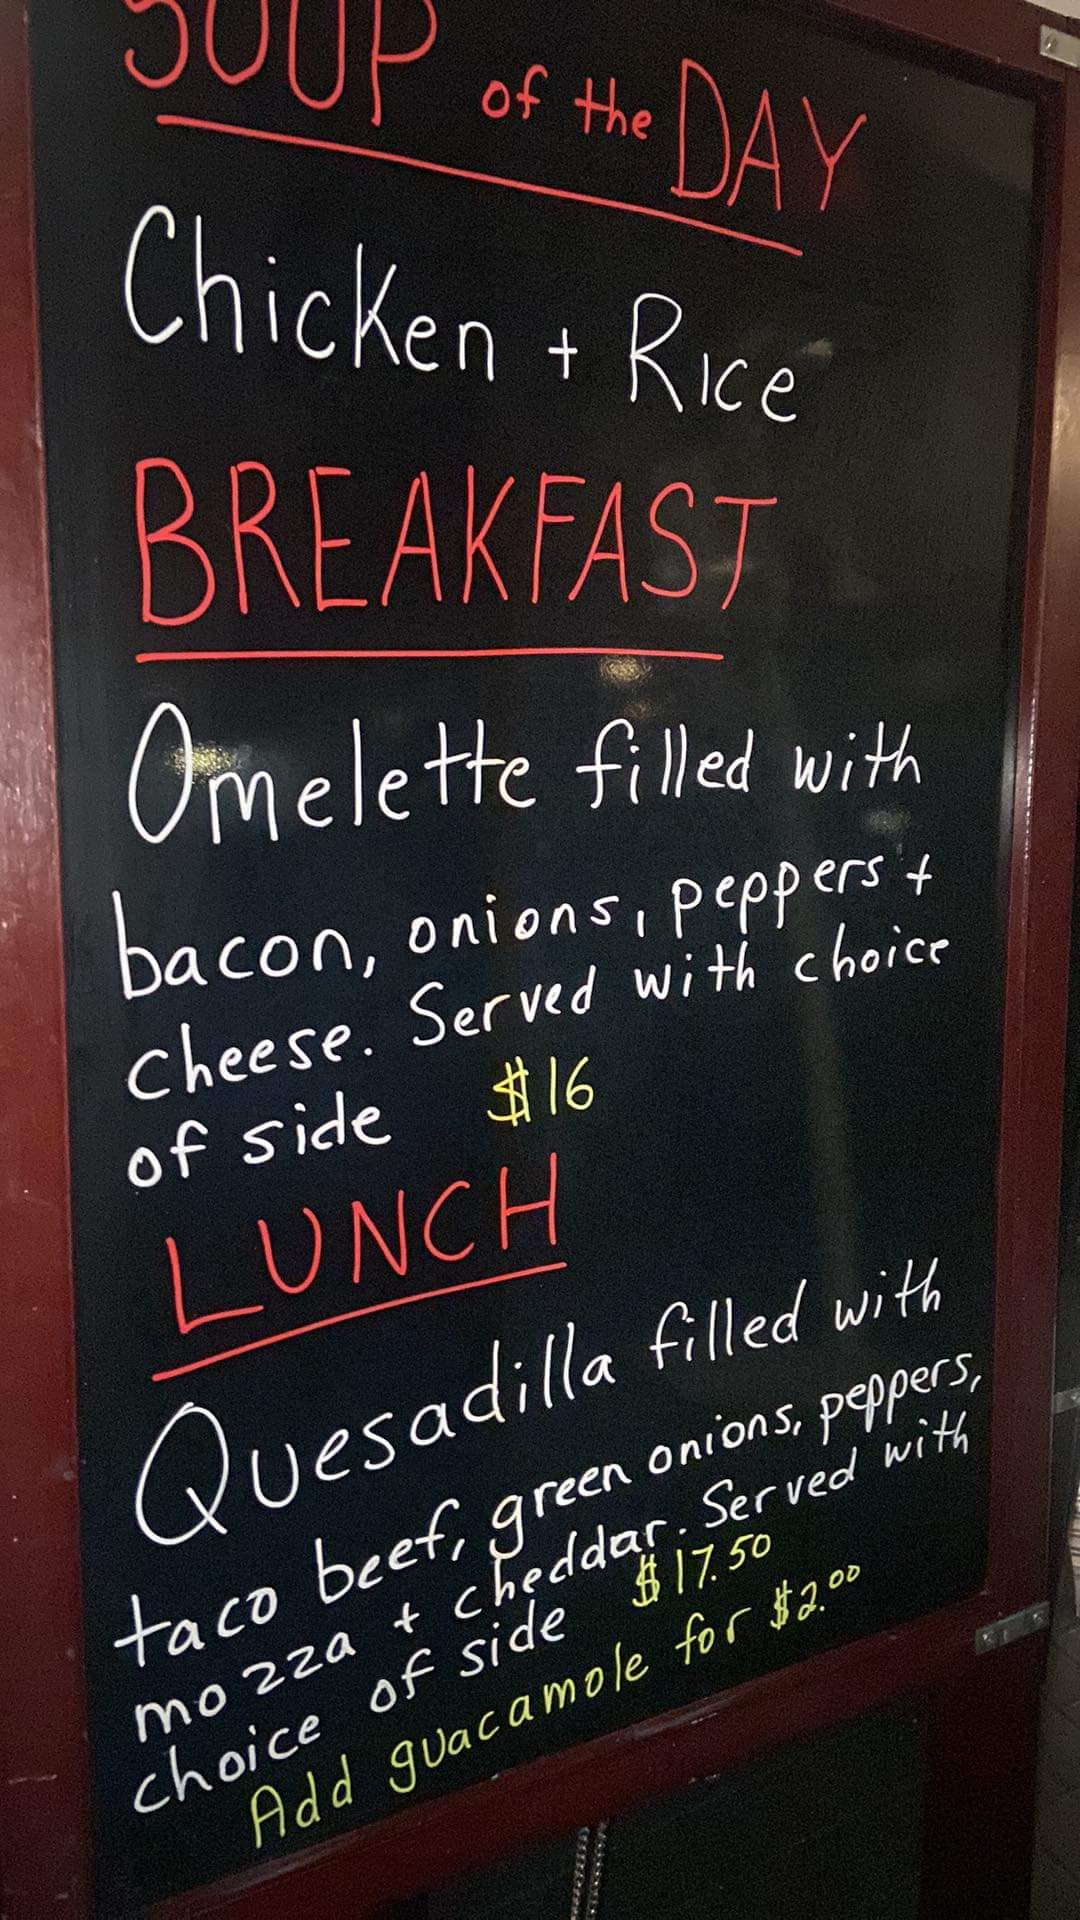 SOUP of the DAY
Chicken + Rice
BREAKFAST
Omelette filled with
bacon, onions, peppers +
cheese. Served with choice
of side $16
LUNCH
Quesadilla filled with
taco beef, green onions, peppers,
mozza + cheddar. Served with
choice of side $17.50
Add guacamole for $2.00